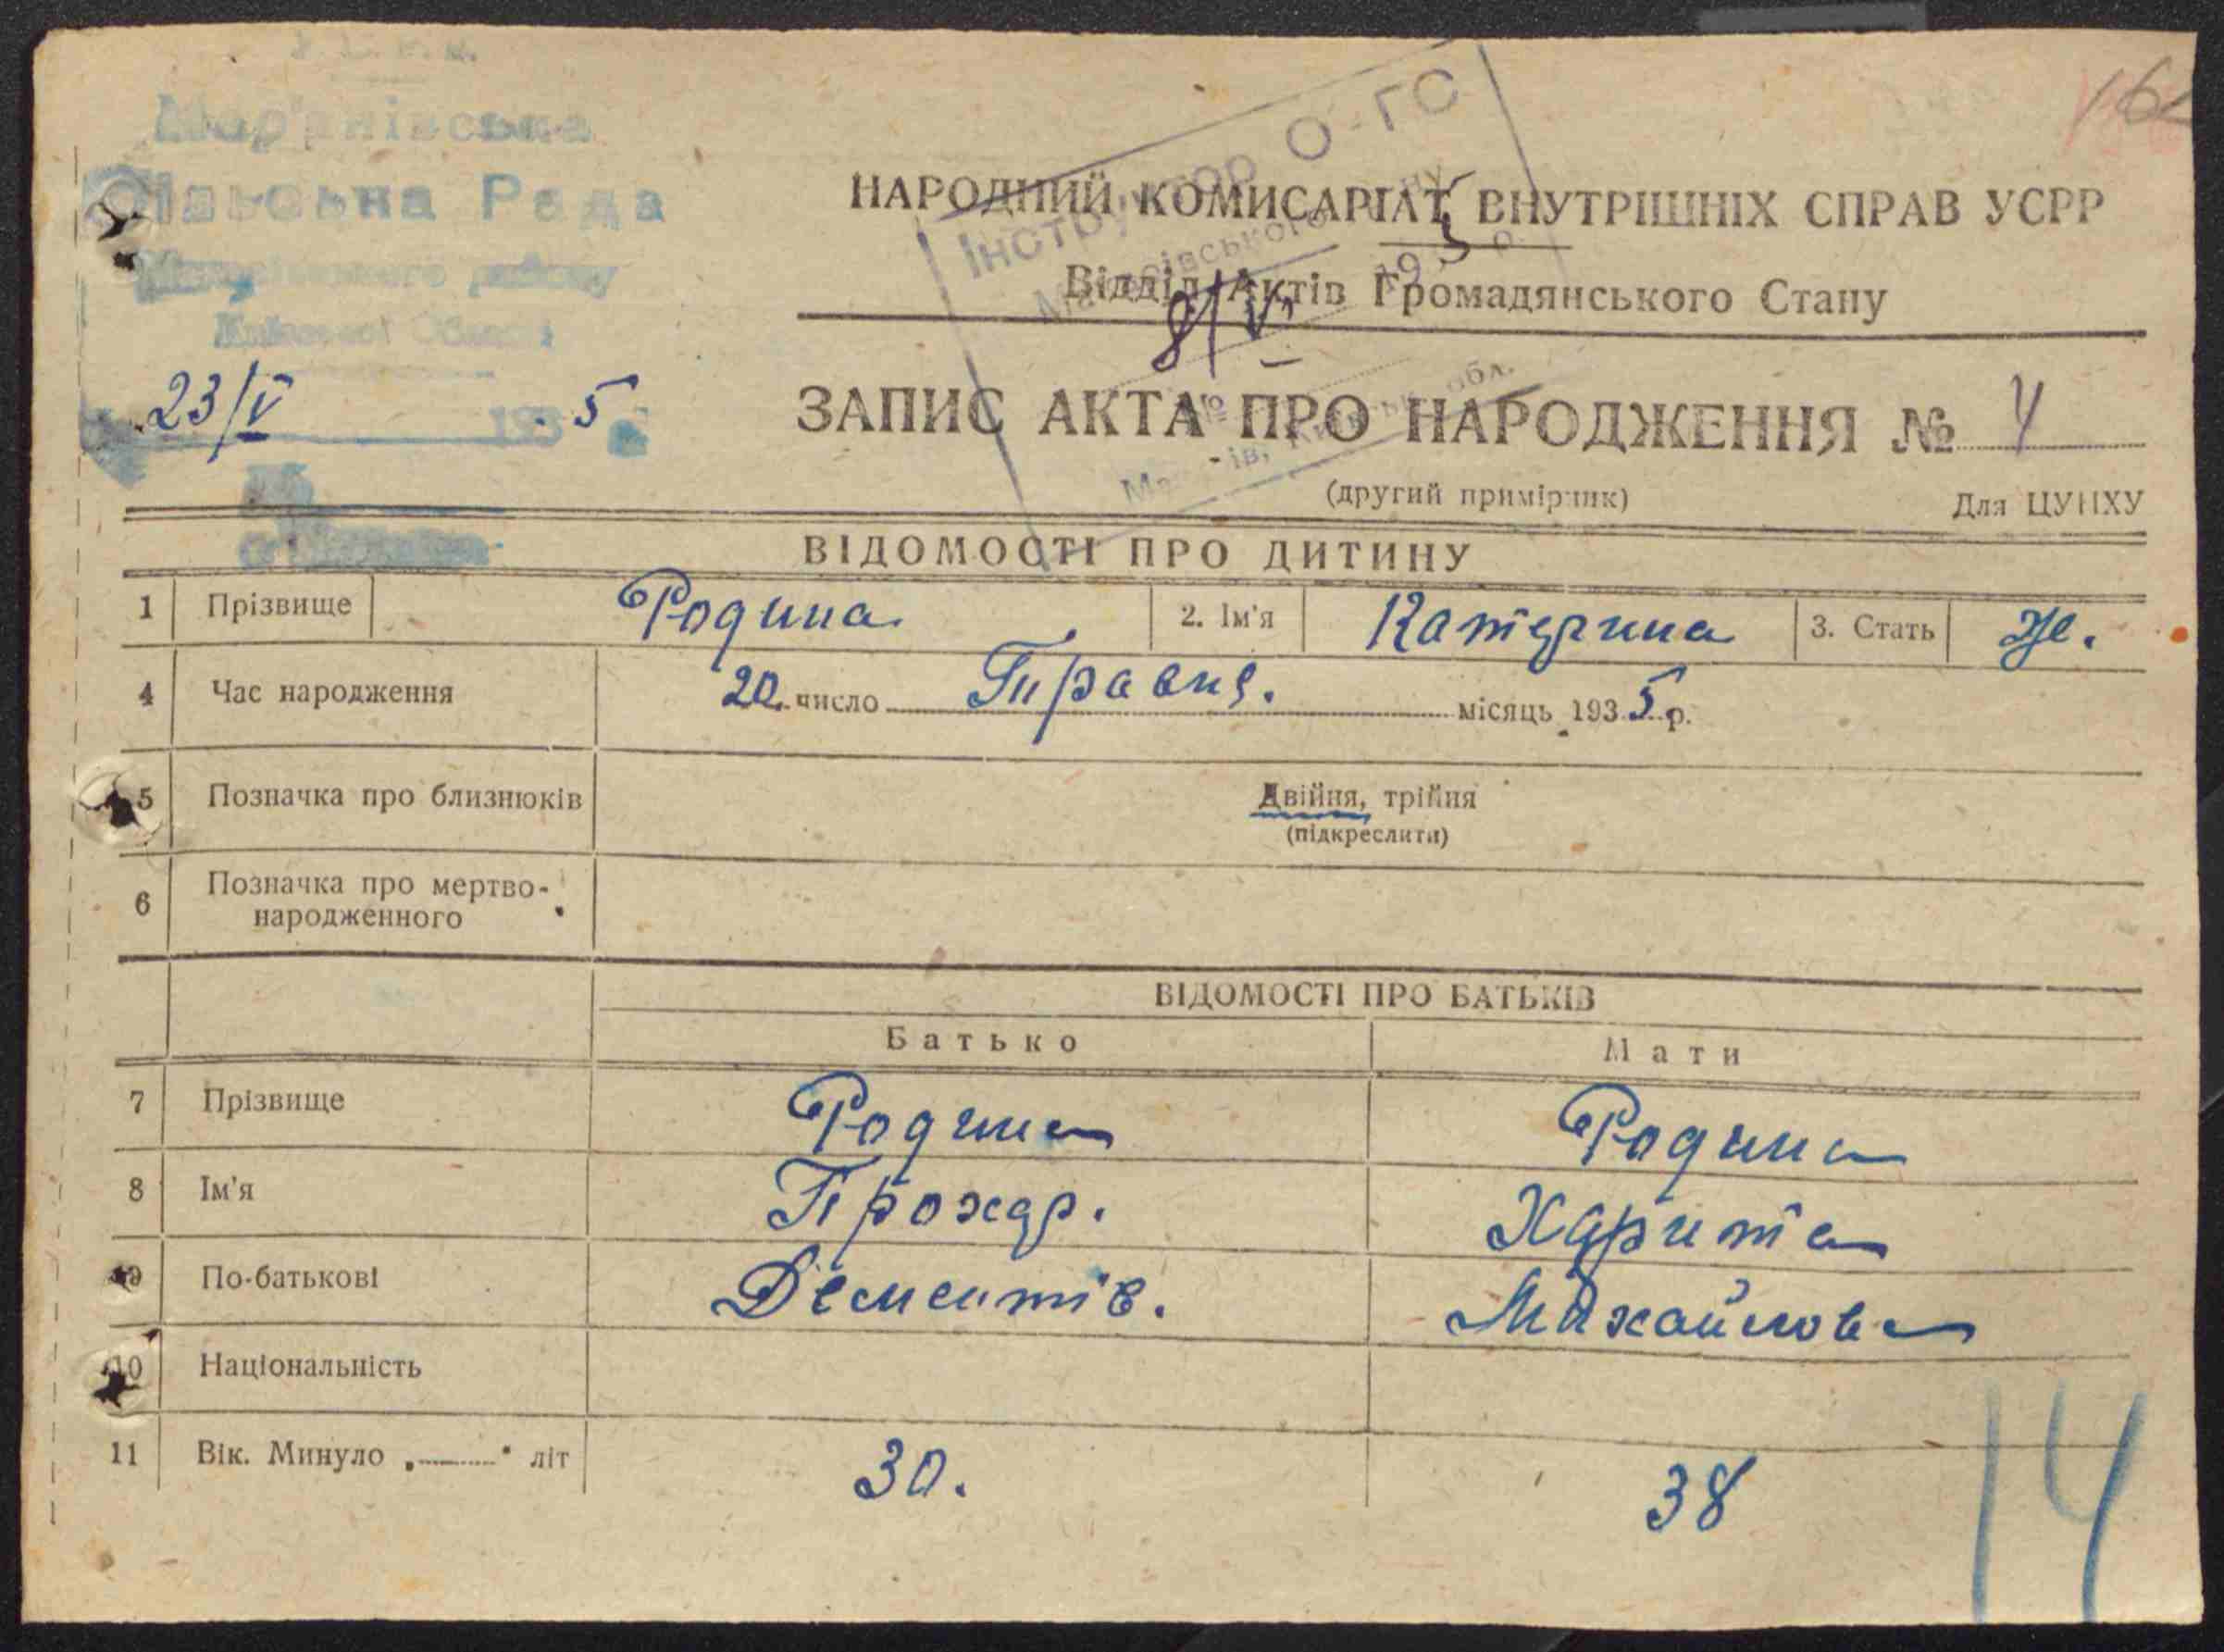 Мар'янівська
Сільська Рада
району
Київської Області
23/V 193 5
НАРОДНИЙ КОМИСАРІАТ ВНУТРІШНІХ СПРАВ УСРР
Відділ Актів Громадянського Стану
Інструктор О-ГС
8/V
ЗАПИС АКТА ПРО НАРОДЖЕННЯ № 4
(другий примірник) Для ЦУНХУ
ВІДОМОСТІ ПРО ДИТИНУ
1 Прізвище Родина 2. Ім'я Катерина 3. Стать Ж.
4 Час народження 20 число Травня. місяць 1935 р.
5 Позначка про близнюків Двійня, трійня
(підкреслити)
6 Позначка про мертво-
народженного
ВІДОМОСТІ ПРО БАТЬКІВ
Батько Мати
7 Прізвище Родина Родина
8 Ім'я Прохор. Харита
9 По-батькові Дементів. Михайлова
10 Національність
11 Вік. Минуло „ “ літ 30. 38
14